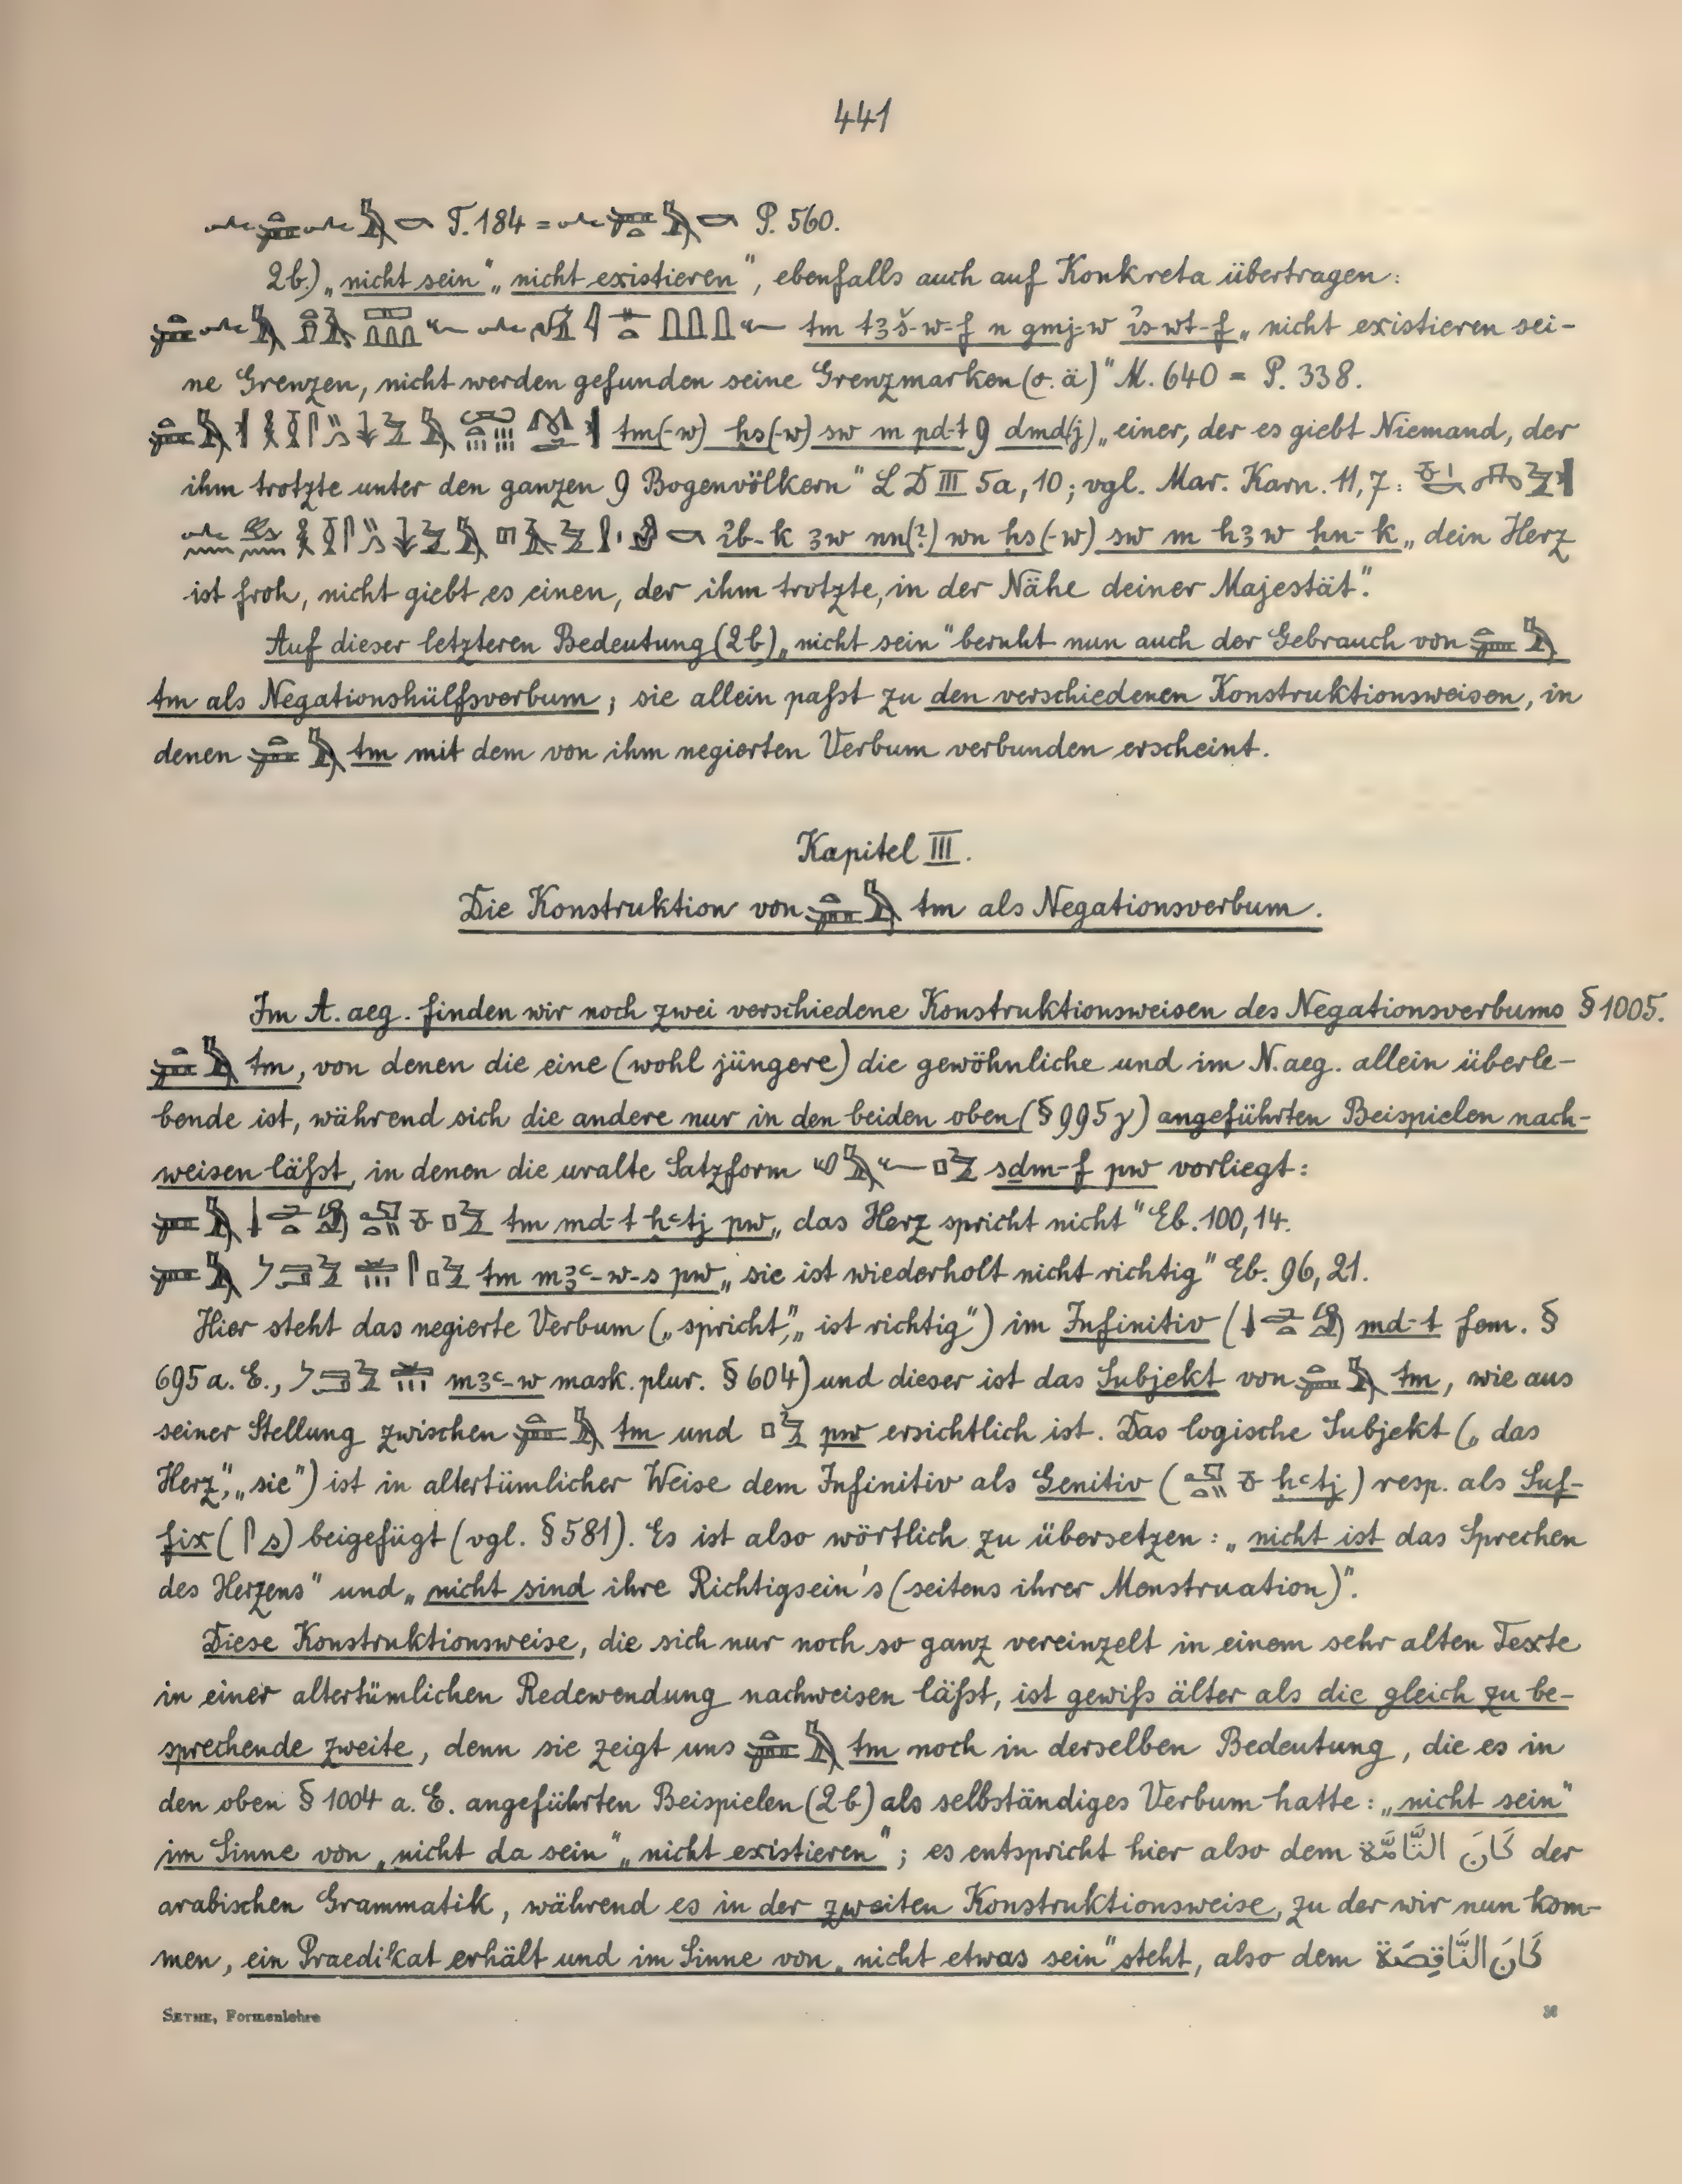 441
T. 184 = P. 560.
2b.) „nicht sein“ „nicht existieren“, ebenfalls auch auf Konkreta übertragen:
tm tꜣš-w-f n gmj-w ἰs-wt-f „nicht existieren sei-
ne Grenzen, nicht werden gefunden seine Grenzmarken (o. ä)“ M. 640 = P. 338.
tm(-w) ḫs(-w) sw m pd-t 9 dmd(j) „einer, der es giebt Niemand, der
ihm trotzte unter den ganzen 9 Bogenvölkern“ LD III 5a, 10; vgl. Mar. Karn. 11, 7:
ἰb-k ꜣw nn(?) wn ḫs(-w) sw m hꜣw ḥn-k „dein Herz
ist froh, nicht giebt es einen, der ihm trotzte, in der Nähe deiner Majestät“.
Auf dieser letzteren Bedeutung (2b) „nicht sein“ beruht nun auch der Gebrauch von
tm als Negationshülfsverbum; sie allein paßt zu den verschiedenen Konstruktionsweisen, in
denen tm mit dem von ihm negierten Verbum verbunden erscheint.
Kapitel III.
Die Konstruktion von tm als Negationsverbum.
Im A. aeg. finden wir noch zwei verschiedene Konstruktionsweisen des Negationsverbums § 1005.
tm, von denen die eine (wohl jüngere) die gewöhnliche und im N. aeg. allein überle-
bende ist, während sich die andere nur in den beiden oben (§ 995γ) angeführten Beispielen nach-
weisen läßt, in denen die uralte Satzform sdm-f pw vorliegt:
tm md-t ḥꜥtj pw „das Herz spricht nicht“ Eb. 100, 14.
tm mꜣꜥ-w-s pw „sie ist wiederholt nicht richtig“ Eb. 96, 21.
Hier steht das negierte Verbum („spricht“, „ist richtig“) im Infinitiv ( md-t fem. §
695 a. E., mꜣꜥ-w mask. plur. § 604) und dieser ist das Subjekt von tm, wie aus
seiner Stellung zwischen tm und pw ersichtlich ist. Das logische Subjekt („das
Herz“, „sie“) ist in altertümlicher Weise dem Infinitiv als Genitiv ( ḥꜥtj) resp. als Suf-
fix ( s) beigefügt (vgl. § 581). Es ist also wörtlich zu übersetzen: „nicht ist das Sprechen
des Herzens“ und „nicht sind ihre Richtigsein's (seitens ihrer Menstruation)“.
Diese Konstruktionsweise, die sich nur noch so ganz vereinzelt in einem sehr alten Texte
in einer altertümlichen Redewendung nachweisen läßt, ist gewiß älter als die gleich zu be-
sprechende zweite, denn sie zeigt uns tm noch in derselben Bedeutung, die es in
den oben § 1004 a. E. angeführten Beispielen (2b) als selbständiges Verbum hatte: „nicht sein“
im Sinne von „nicht da sein“ „nicht existieren“; es entspricht hier also dem كَانَ التَّامَّة der
arabischen Grammatik, während es in der zweiten Konstruktionsweise, zu der wir nun kom-
men, ein Praedikat erhält und im Sinne von „nicht etwas sein“ steht, also dem كَانَ النَّاقِصَة
SETHE, Formenlehre